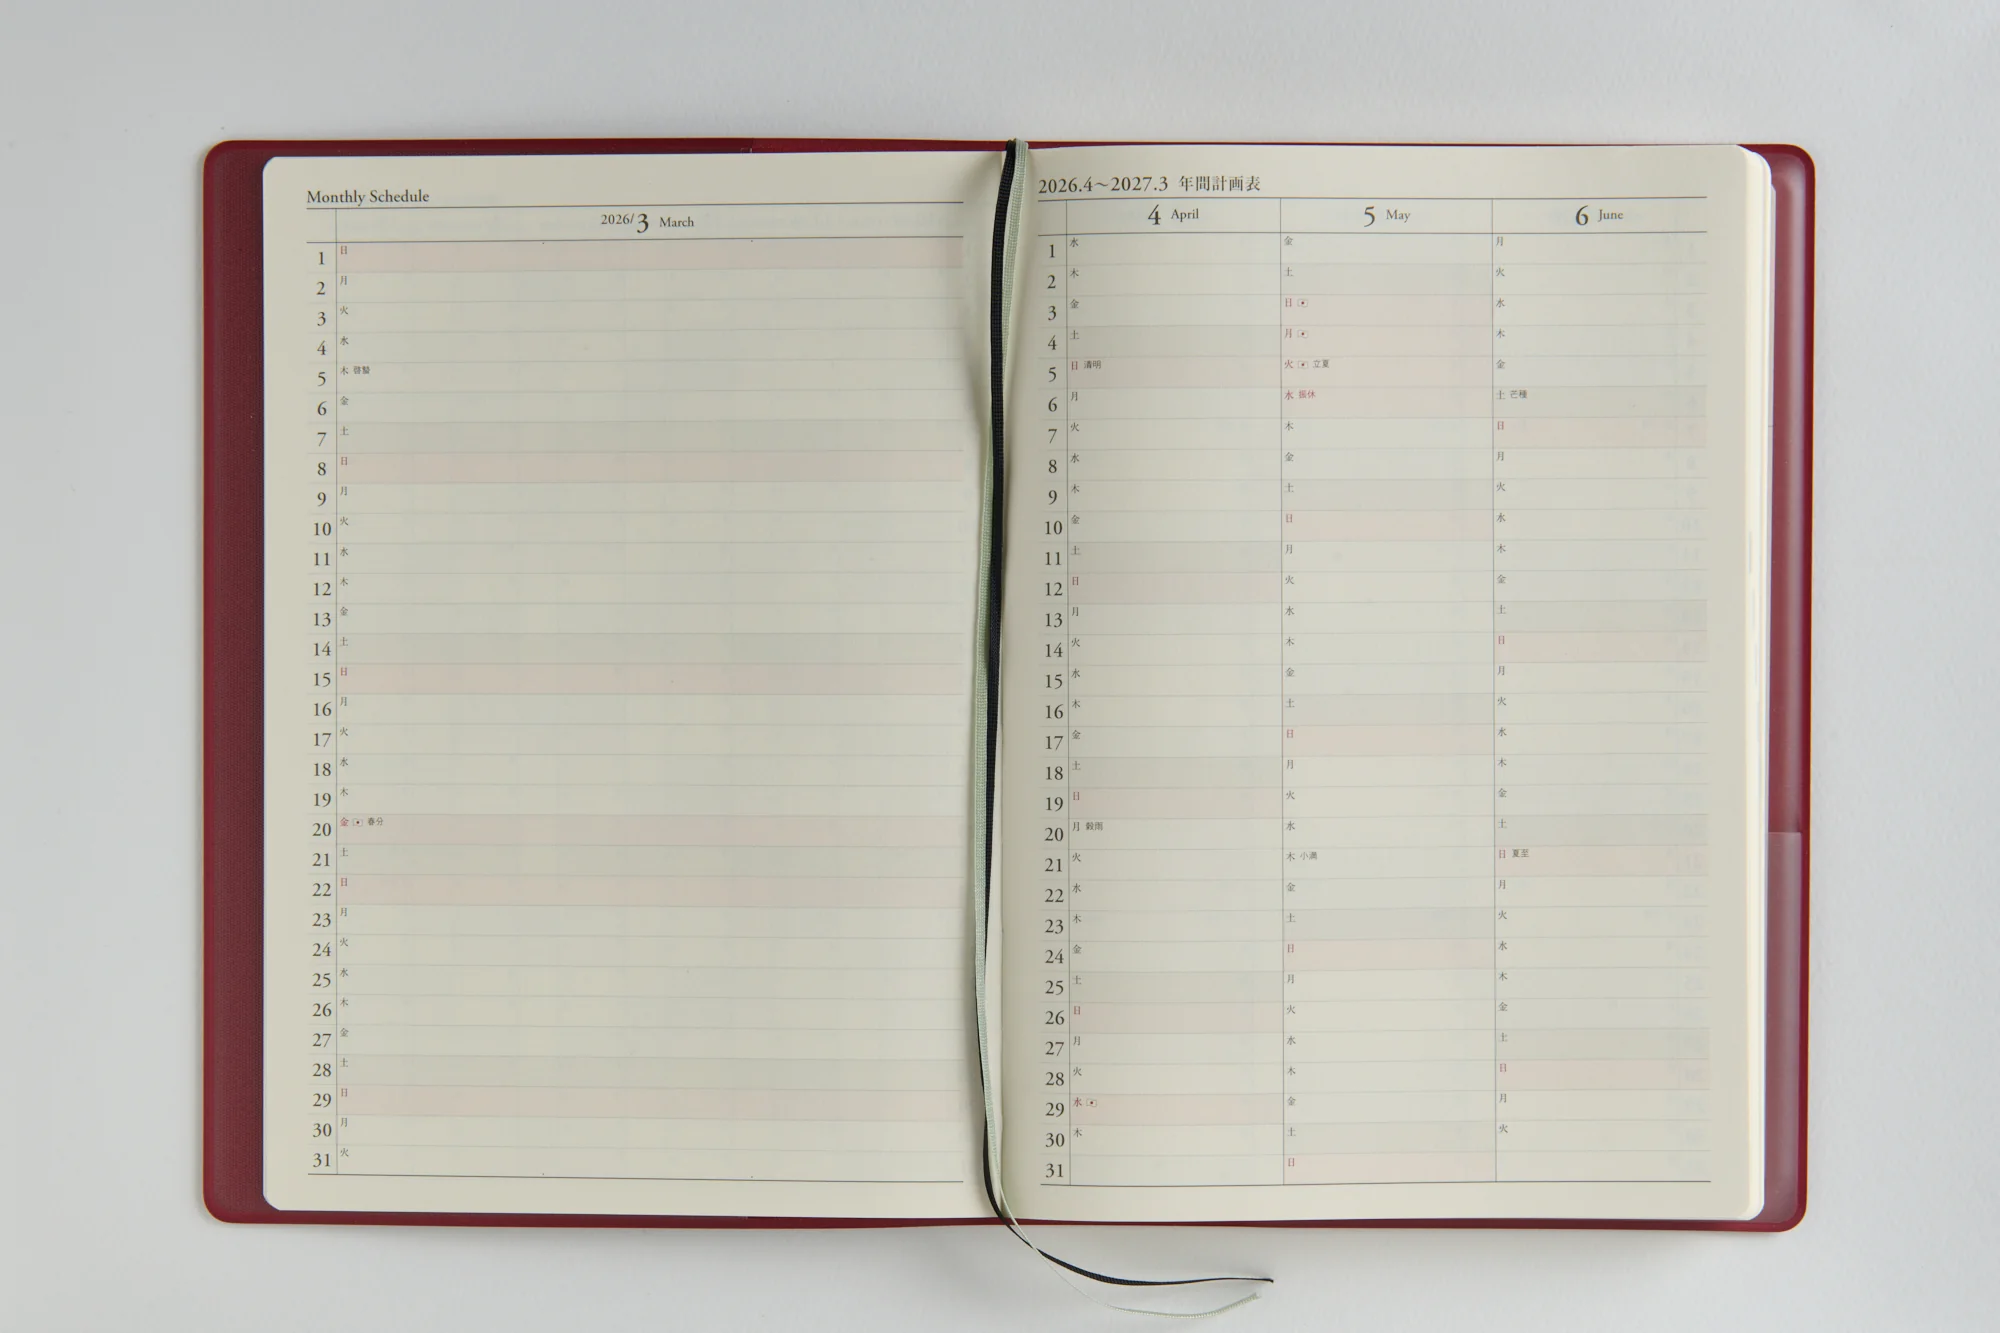 Monthly Schedule
2026/3 March
1 日
2 月
3 火
4 水
5 木 啓蟄
6 金
7 土
8 日
9 月
10 火
11 水
12 木
13 金
14 土
15 日
16 月
17 火
18 水
19 木
20 金 春分
21 土
22 日
23 月
24 火
25 水
26 木
27 金
28 土
29 日
30 月
31 火
2026.4～2027.3 年間計画表
4 April 5 May 6 June
1 水 金 月
2 木 土 火
3 金 日 水
4 土 月 木
5 日 清明 火 立夏 金
6 月 水 振休 土 芒種
7 火 木 日
8 水 金 月
9 木 土 火
10 金 日 水
11 土 月 木
12 日 火 金
13 月 水 土
14 火 木 日
15 水 金 月
16 木 土 火
17 金 日 水
18 土 月 木
19 日 火 金
20 月 穀雨 水 土
21 火 木 小満 日 夏至
22 水 金 月
23 木 土 火
24 金 日 水
25 土 月 木
26 日 火 金
27 月 水 土
28 火 木 日
29 水 金 月
30 木 土 火
31 日